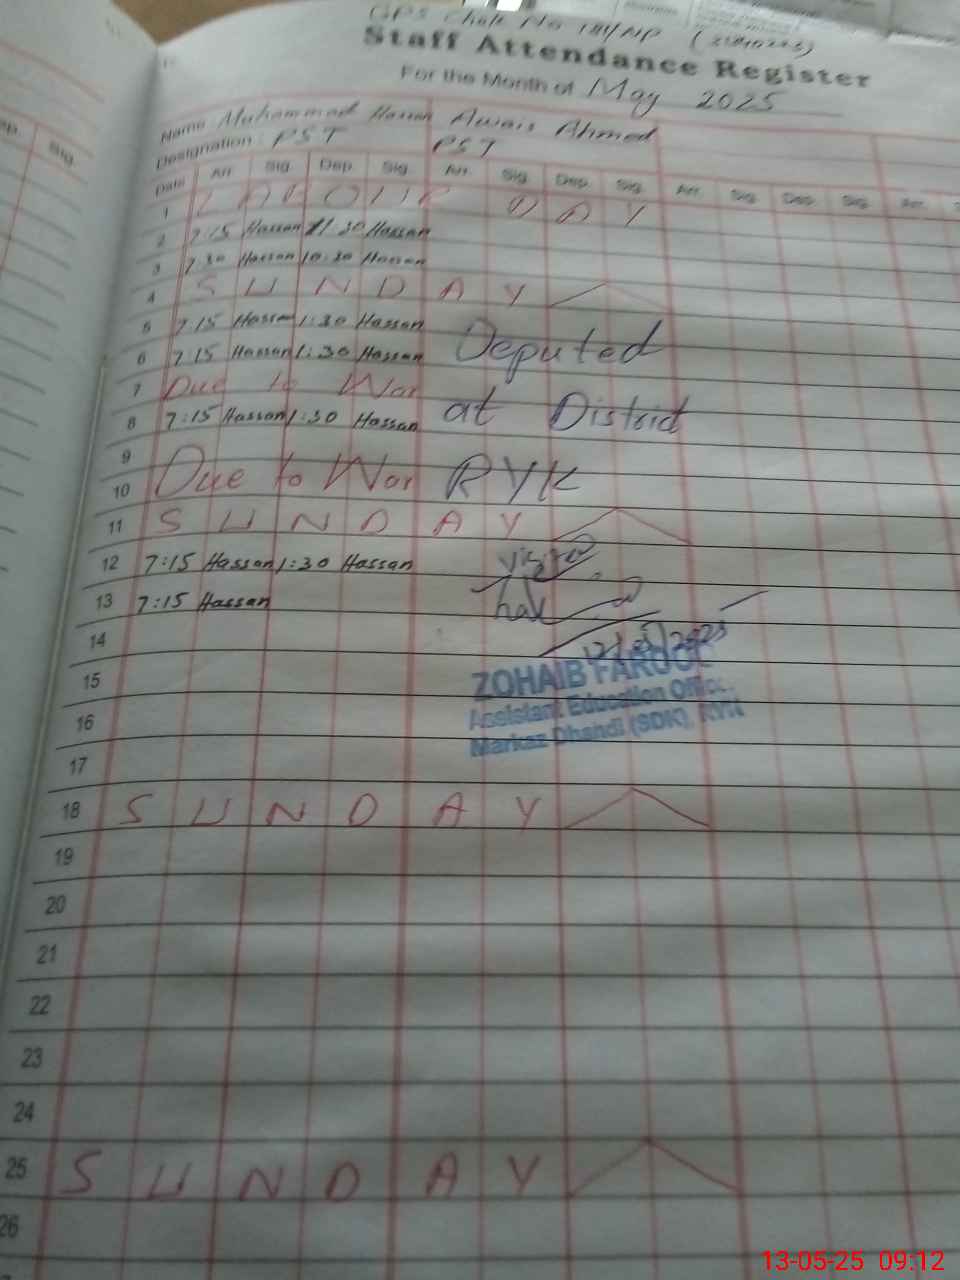 GPS Chak No 184/NP
Staff Attendance Register
For the Month of May 2025
Name Muhammad Hassan Awais Ahmed
Designation: PST PST
Date Arr. Sig. Dep. Sig. Arr. Sig. Dep. Sig. Arr. Sig. Dep. Sig. Arr.
1 LABOUR DAY
2 7:15 Hassan 11:30 Hassan
3 7:30 Hassan 10:30 Hassan
4 SUNDAY
5 7:15 Hassan 1:30 Hassan
6 7:15 Hassan 1:30 Hassan Deputed
7 Due to War
8 7:15 Hassan 1:30 Hassan at District
9
10 Due to War RYK
11 SUNDAY
12 7:15 Hassan 1:30 Hassan Visited
13 7:15 Hassan
14
12/05/2025
15 ZOHAIB FAROOQ
Assistant Education Officer
16 Markaz Dhandi (SDK), RYK
17
18 SUNDAY
19
20
21
22
23
24
25 SUNDAY
26
13-05-25 09:12